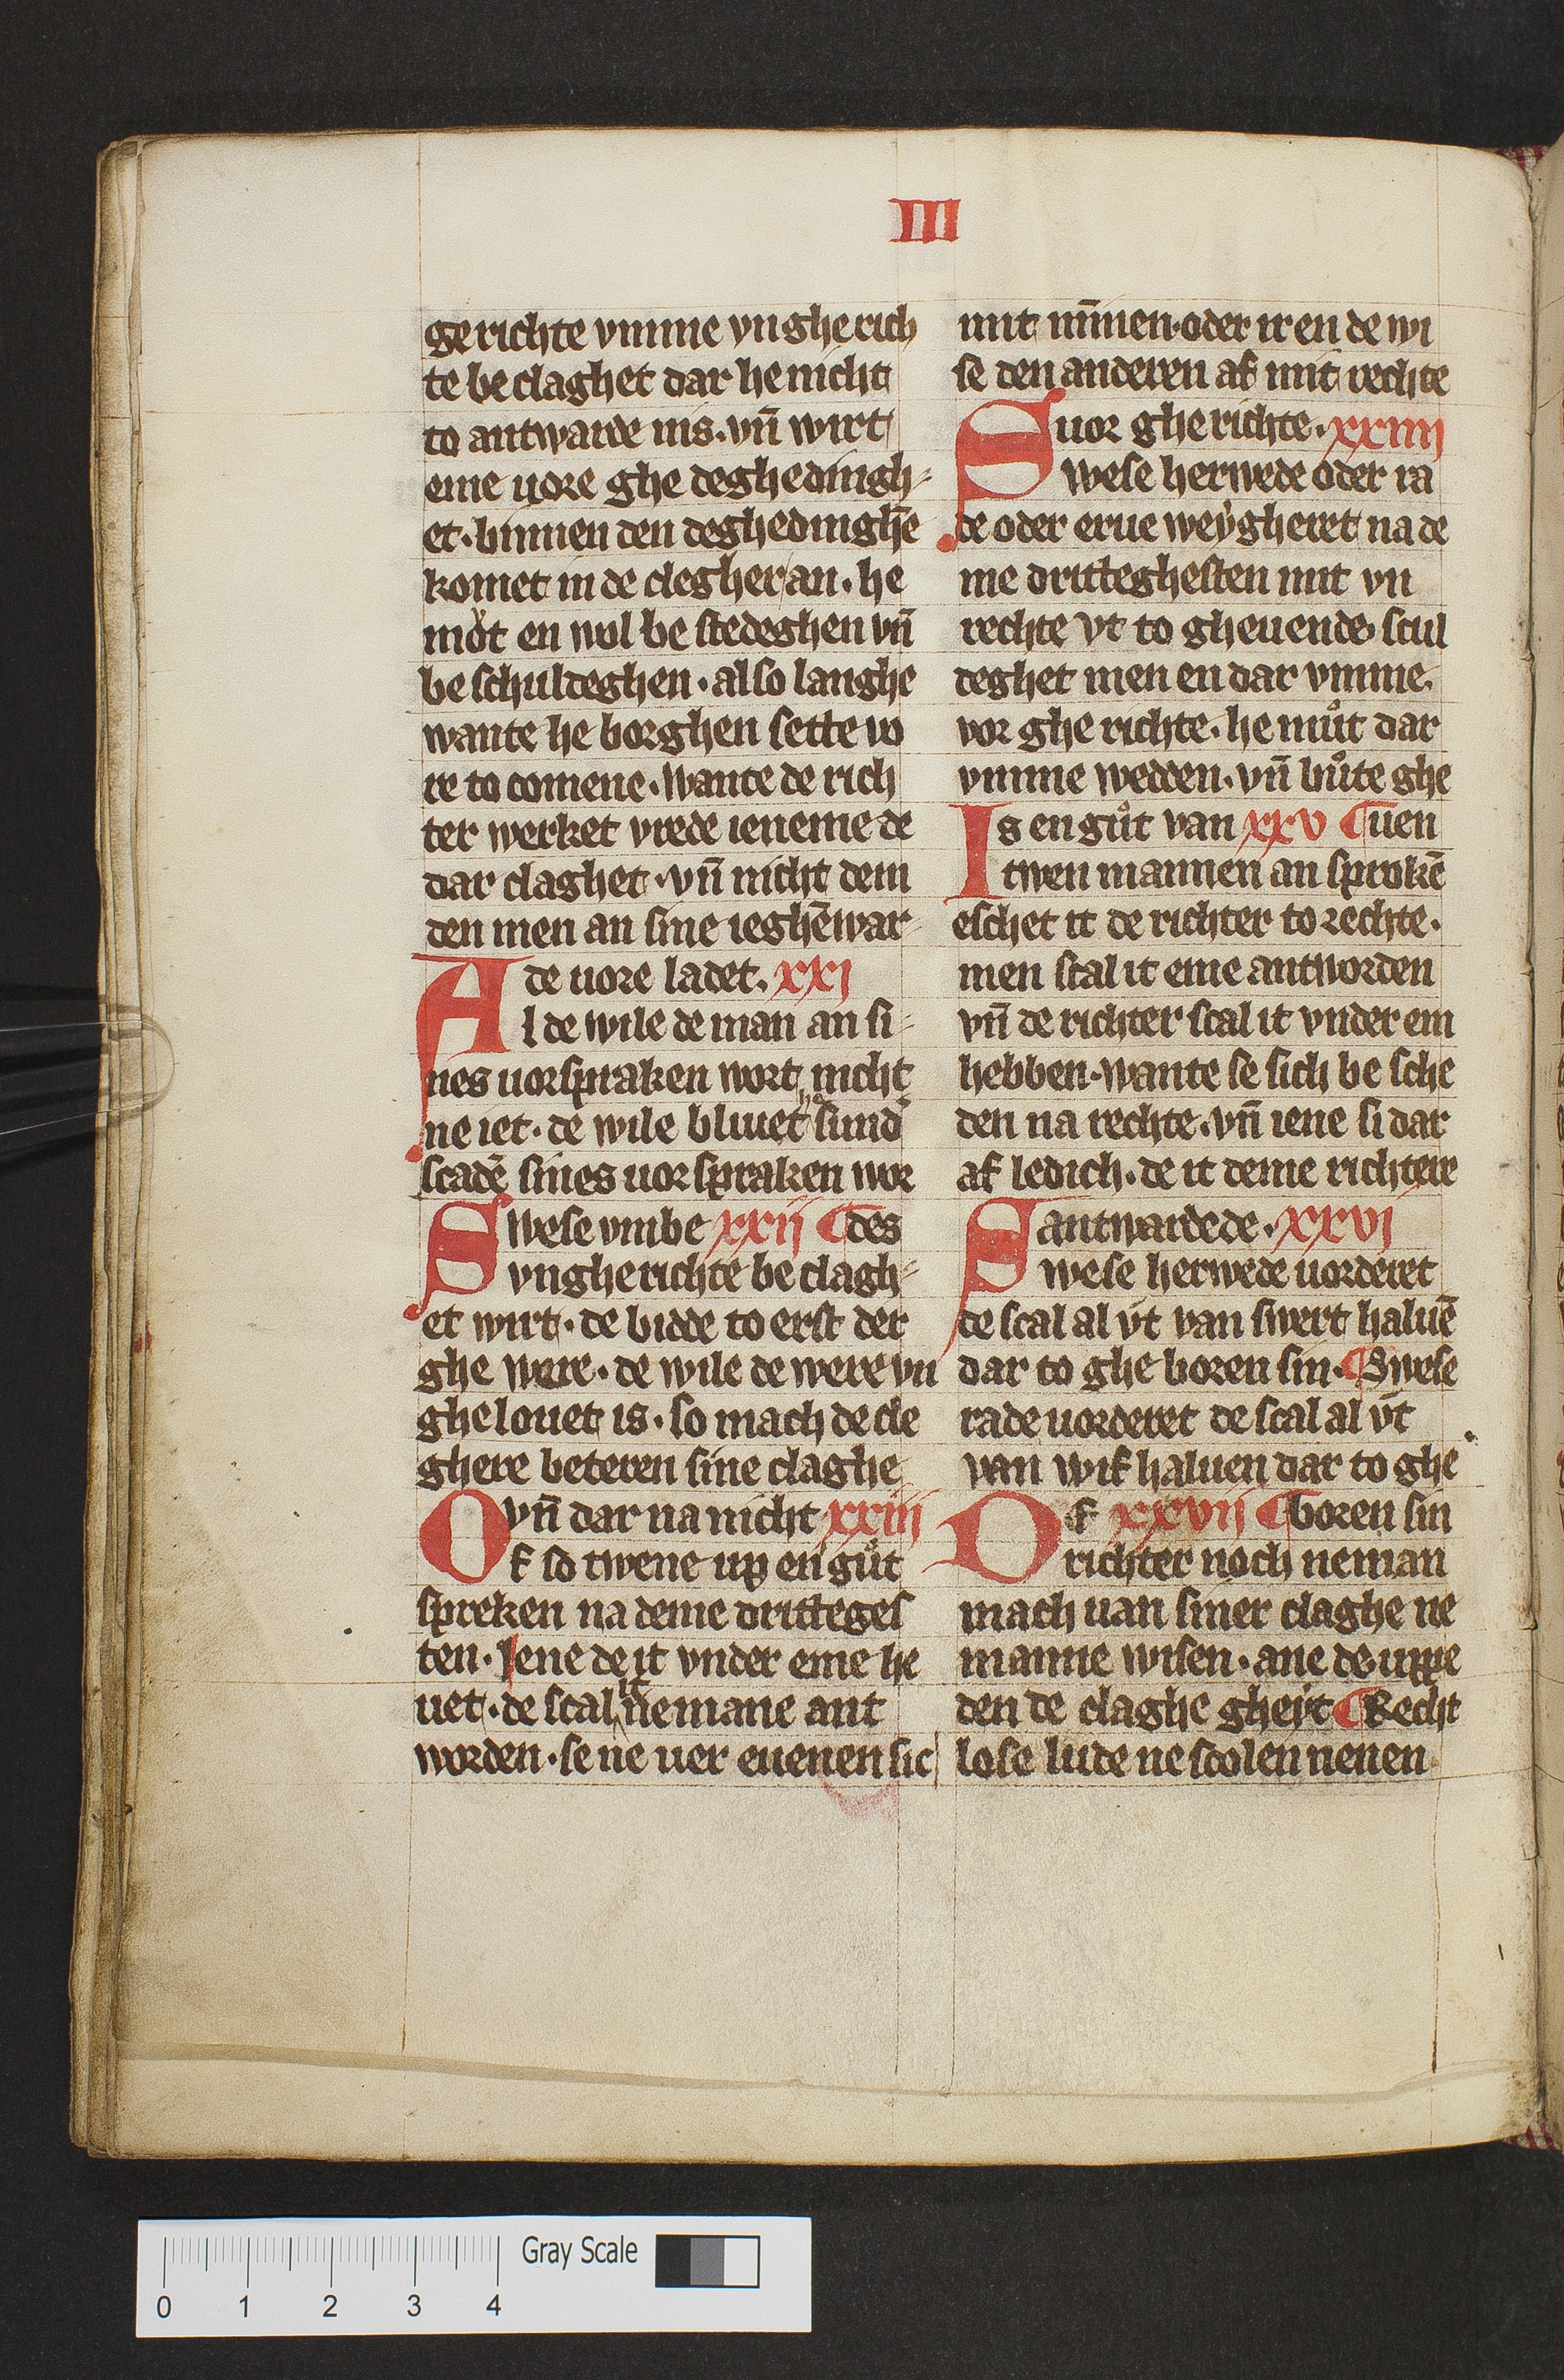 III
gerichte vmme vngherich
te beclaghet dar he nicht
to antwarde nis. vn̄ wirt
eme uore ghe deghedingh-
et. binnen den deghedinghē
komet in de clegher an. he
mot en wol be stedeghen vn̄
be schuldeghen. also langhe
wante he borghen sette vo
re to comene. wante de rich
ter werket vrede ieneme de
dar claghet. vn̄ nicht dem
den men an sine ieghēwar-
de uore ladet. xxi
Al de wile de man an si-
nes uorspraken wort nicht
ne iet. de wile bliuet sund᷑
scadē sines uorspraken wor
Swese vmbe xxii ¶ des
vngherichte beclagh-
et wirt. de bidde to erst der
ghe were. de wile de were vn
ghelouet is. so mach de cle
ghere beteren sine claghe
vn̄ dar na nicht xxiii
Of so twene up en gůt
spreken na deme dritteges
ten. Iene de it vnder eme he
uet. de scal it nemane ant
worden. se ne uer euenen sic
mit mīnen. oder ir en de wi
se den anderen af mit rechte
uor gherichte. xxiiii
Swese herwede oder ra
de oder erue weẏgheret na de
me dritteghesten mit vn
rechte vt to gheuende. scul
deghet men en dar vmme.
vor ghe richte. he můt dar
vmme wedden. vn̄ bůte ghe
Is en gůt van xxv ¶ uen
twen mannen an sprokē
eschet it de richter to rechte.
men scal it eme antworden
vn̄ de richter scal it vnder em
hebben. wante se sich be sche
den na rechte. vn̄ iene si dar
af ledich. de it deme richtere
antwardede. xxvi
Swese herwede uorderet
de scal al vt van swert haluē
dar to ghe boren sin. ¶ Swese
rade uorderet de scal al vt
van wif haluen dar to ghe
Of xxvii ¶ boren sin
richter noch neman
mach uan siner claghe ne
manne wisen. ane de uppe
den de claghe gheẏt ¶ Recht
lose lude ne scolen nenen
Gray Scale
0 1 2 3 4